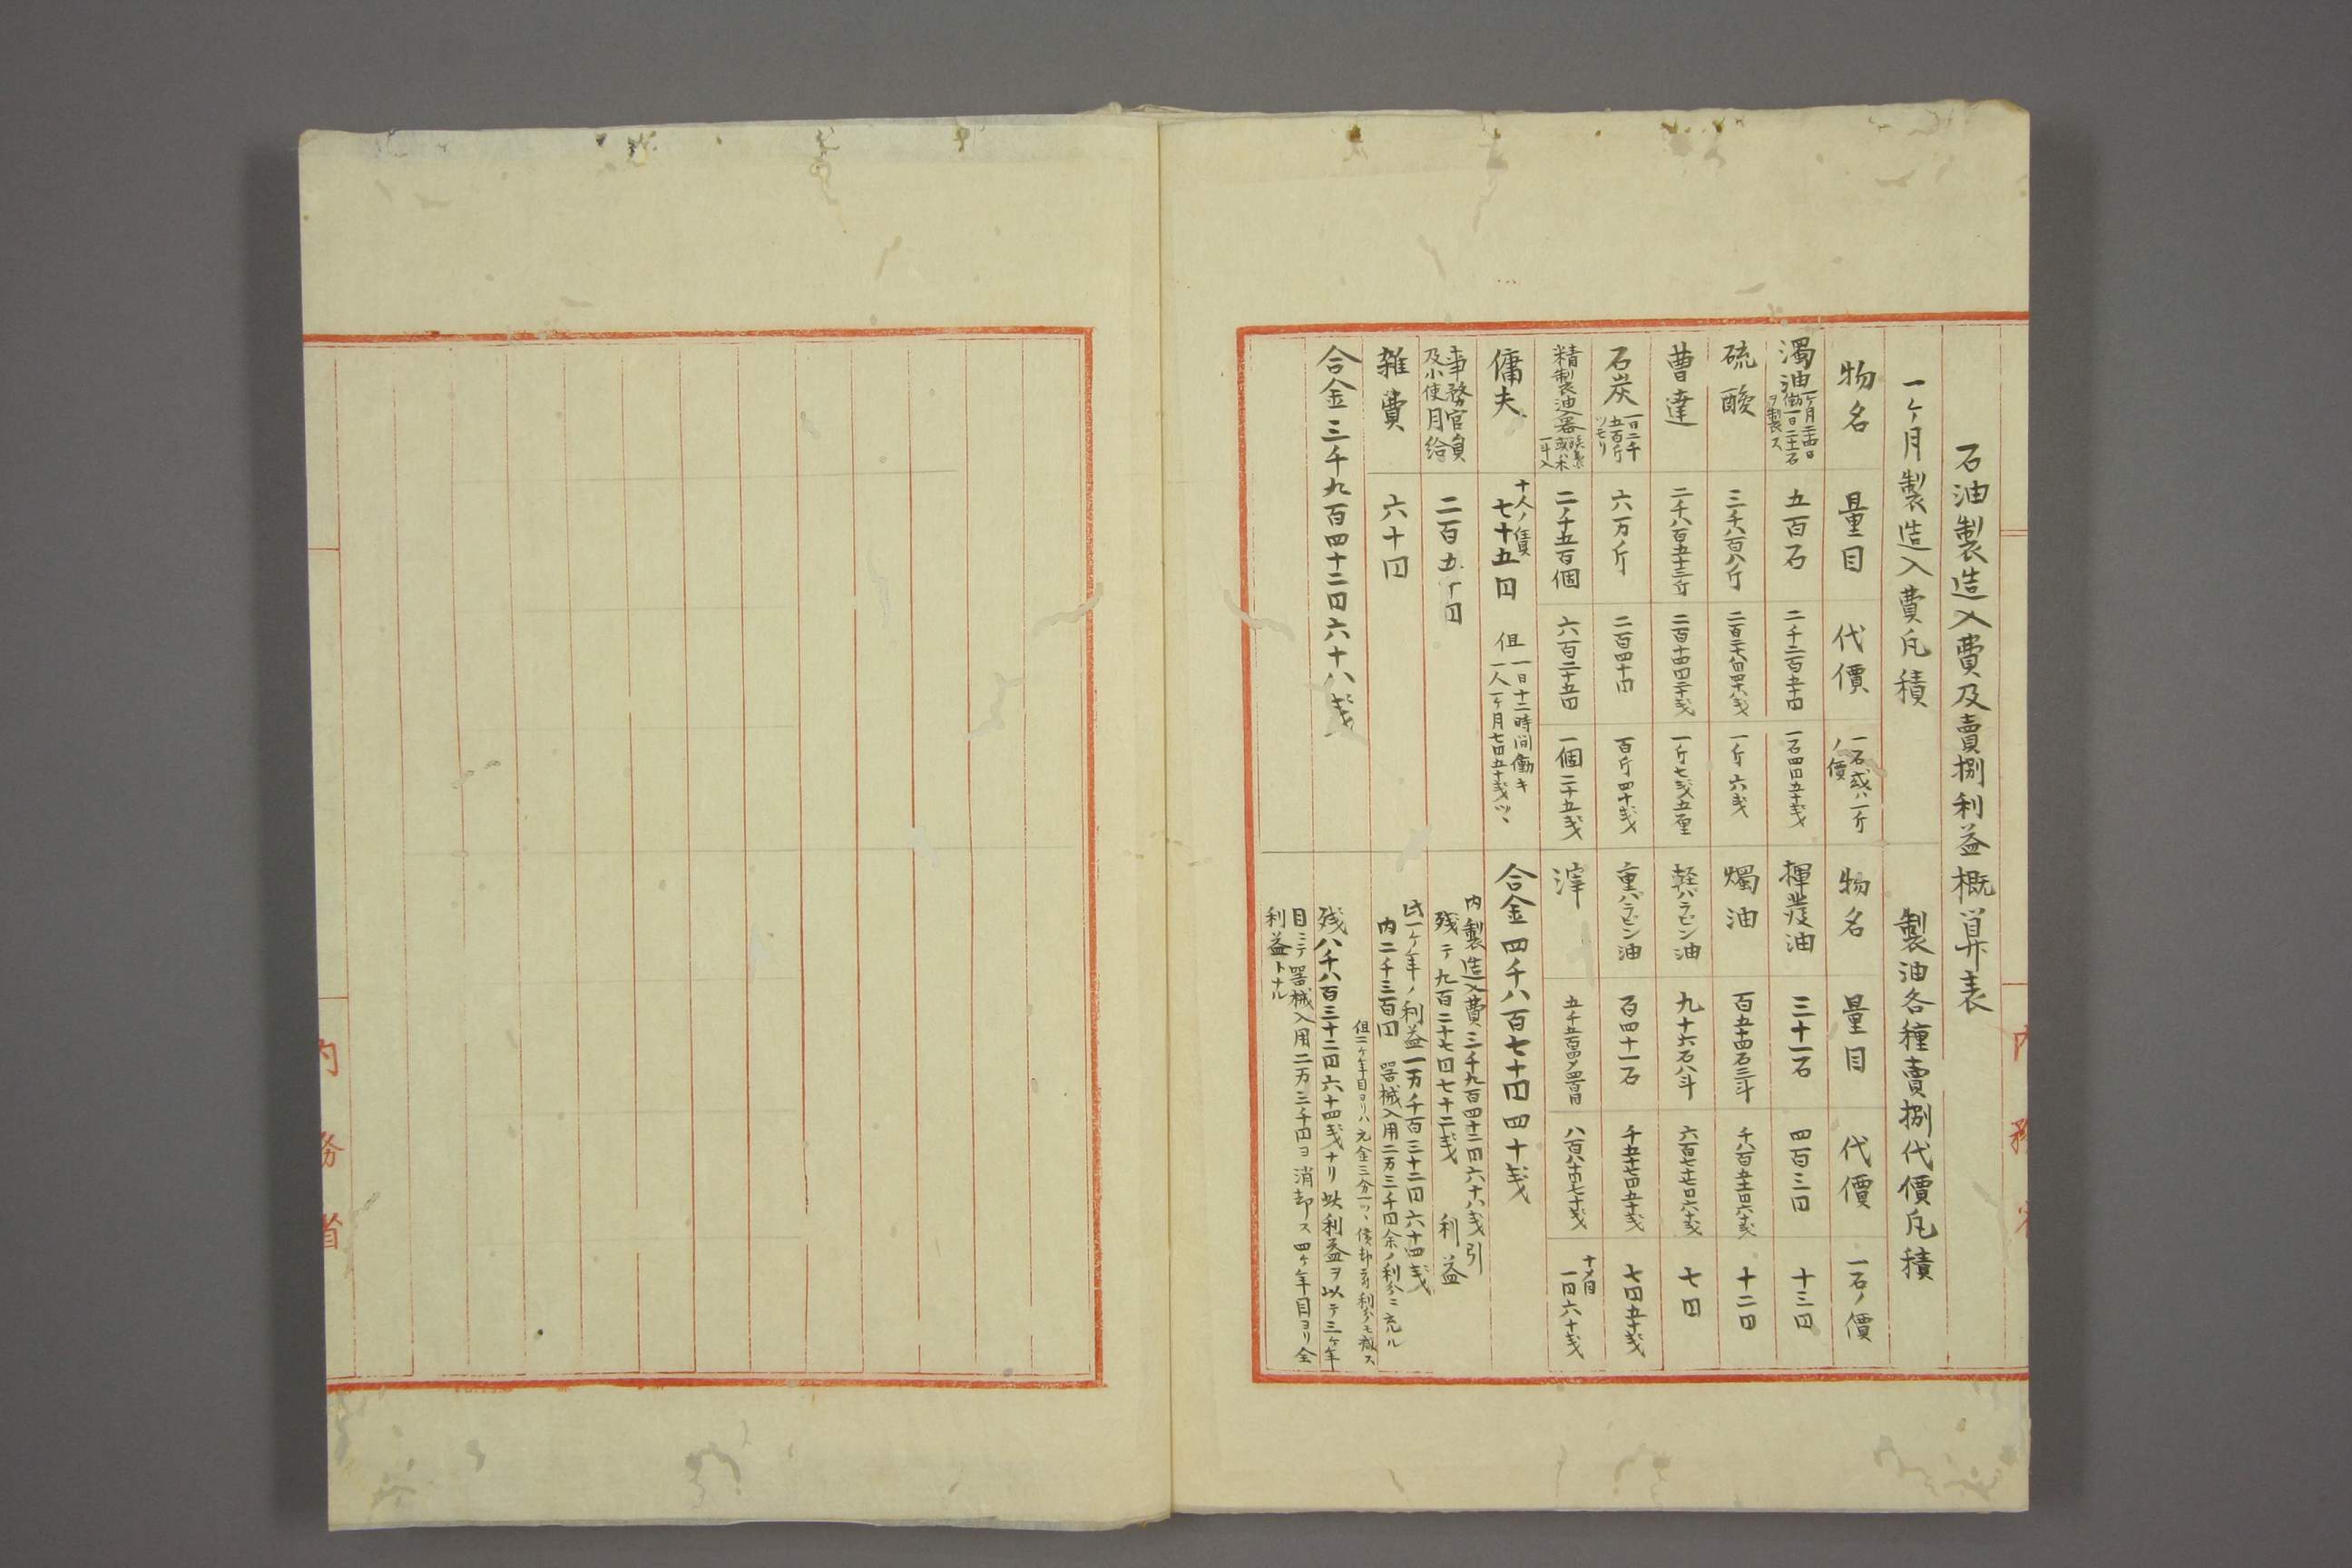 石油製造入費及賣捌利益概算表
一ヶ月製造入費凡積
製油各種賣捌代價凡積
物名 量目 代價 一石或ハ一斤ノ價
濁油 一ヶ月二十四日働一日二十一石ヲ製ス 五百石 二千二百五十円 一石四円五十戔
硫酸 三千八百八斤 二百二十八円四十八戔 一斤六戔
曹達 二千八百五十三斤 二百十四円二十戔 一斤七戔五厘
石炭 一日二千五百斤ツモリ 六万斤 二百四十円 百斤四十戔
精製油入器 或ハ木一斗入 二千五百個 六百二十五円 一個二十五戔
傭夫 十人ノ賃七十五円 但一日十二時間働キ一人一ヶ月七円五十戔ツヽ
事務官員及小使月給 二百五十円
雑費 六十円
合金三千九百四十二円六十八戔
物名 量目 代價 一石ノ價
揮発油 三十一石 四百三円 十三円
燭油 百五十四石三斗 千八百五十一円六十戔 十二円
軽パラピン油 九十六石八斗 六百七十七円六十戔 七円
重パラピン油 百四十一石 千五十七円五十戔 七円五十戔
滓 五千五百四メ四百目 八百八十円七十戔 十メ目一円六十戔
合金四千八百七十円四十戔
内製造入費三千九百四十二円六十八戔引
残テ九百二十七円七十二戔 利益
此一ヶ年ノ利益一万千百三十二円六十四戔
内二千三百円 器械入用二万三千円余ノ利分ニ充ル
但二ヶ年目ヨリハ元金三分一ツヽ償却ニ付利分モ減ス
残八千八百三十二円六十四戔ナリ此利益ヲ以テ三ヶ年
目ニテ器械入用二万三千円ヲ消却ス四ヶ年目ヨリ全
利益トナル
内務省